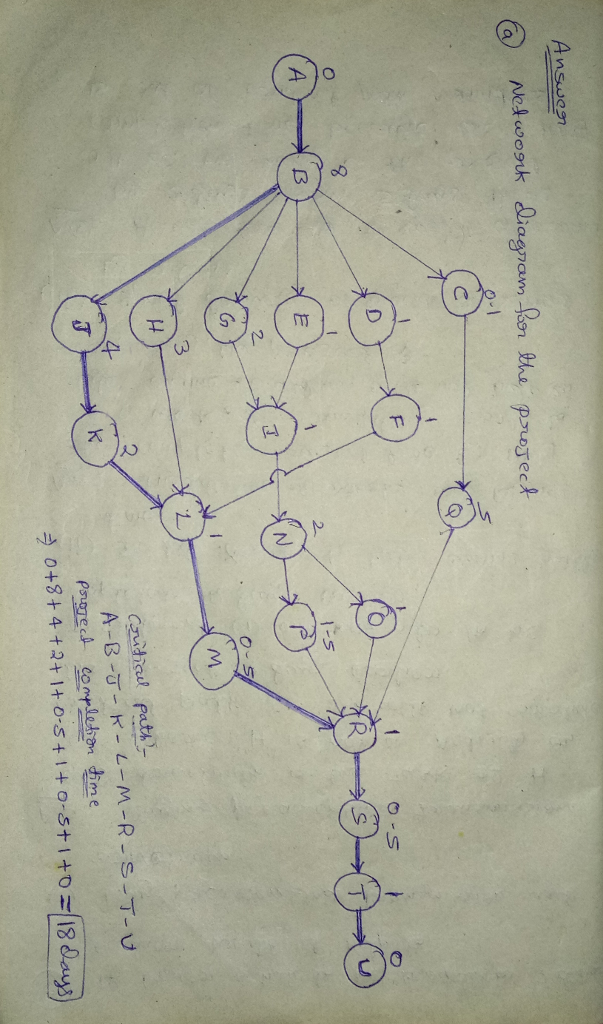 Answer
(a) Network diagram for the project
A 0
B 8
C 0.1
D 1
E 1
G 2
H 3
J 4
F 1
I 1
K 2
Q 5
L 1
N 2
O 1
P 1.5
M 0.5
R 1
S 0.5
T 1
U 0
Critical path:-
A-B-J-K-L-M-R-S-T-U
Project completion time
⇒ 0+8+4+2+1+0.5+1+0.5+1+0 = 18 days